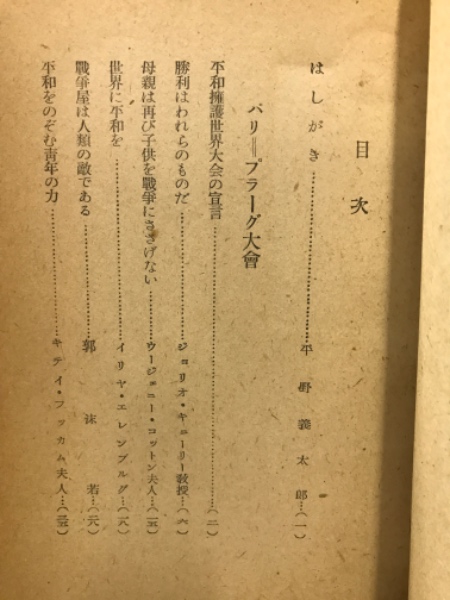 目次
はしがき……平野義太郎…(一)
パリ＝プラーグ大會
平和擁護世界大会の宣言……(二)
勝利はわれらのものだ……ジョリオ・キューリー教授…(六)
母親は再び子供を戰爭にささげない……ウージェニー・コットン夫人…(一五)
世界に平和を……イリヤ・エレンブルグ…(一八)
戰爭屋は人類の敵である……郭沫若…(二六)
平和をのぞむ青年の力……キテイ・フッカム夫人…(三五)